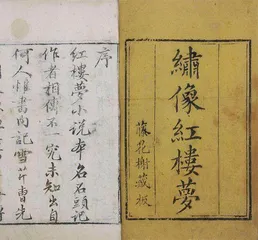 繡像紅樓夢
藤花榭藏板
序
紅樓夢小説本名石頭記
作者相傳不一究未知出自
何人惟書內記雪芹曹先